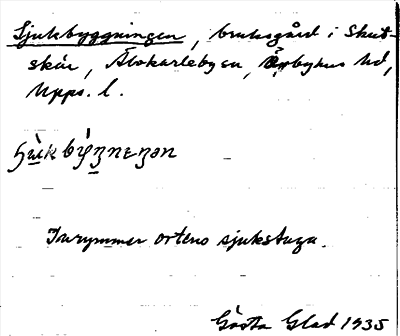 Sjukbyggningen, bruksgård i Skut-
skär, Älvkarleby sn, Örbyhus hd,
Upps. l.
Inrymmer ortens sjukstuga.
Gösta Glad 1935